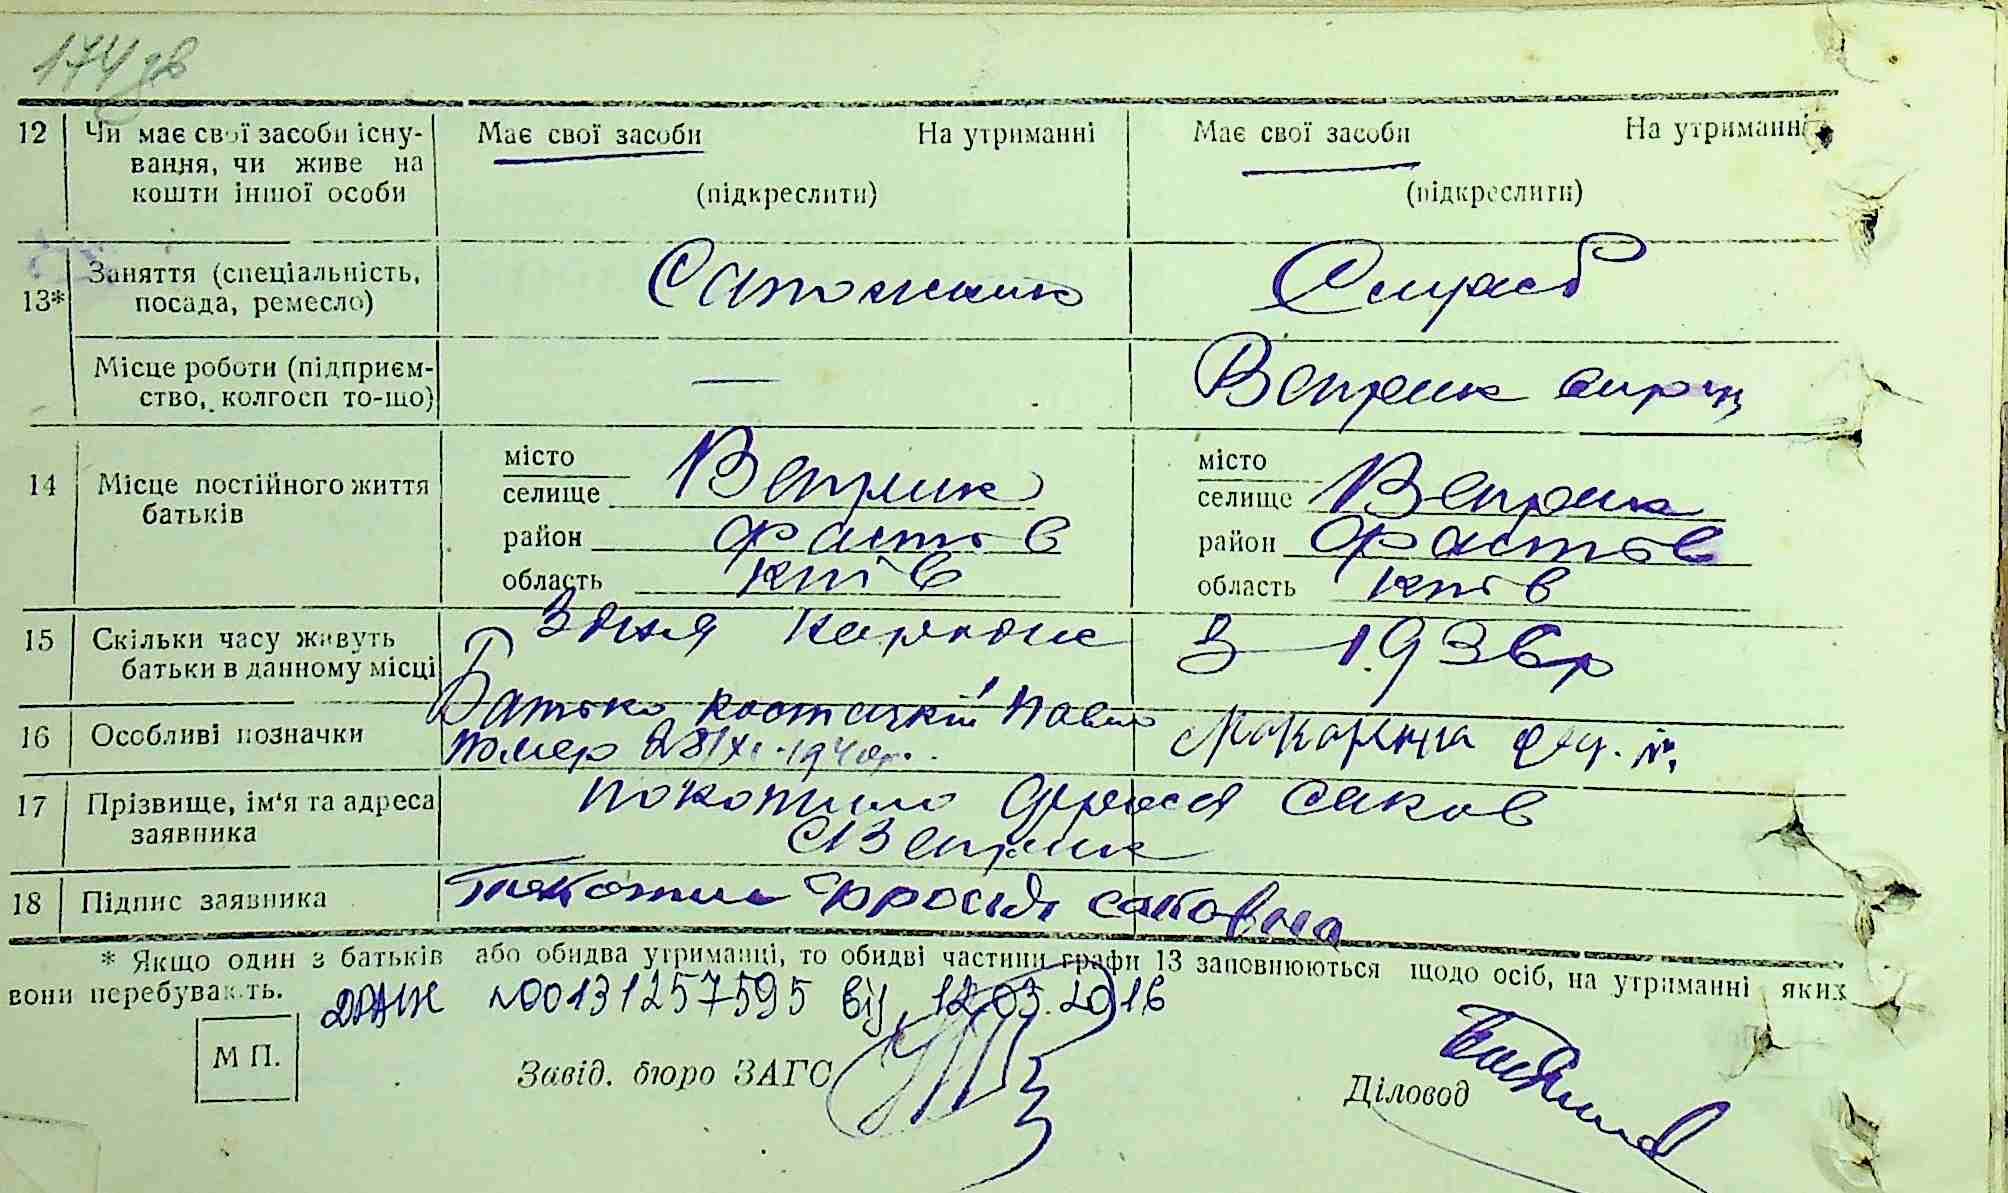 174зв
12 Чи має свої засоби існу-
вання, чи живе на
кошти іншої особи
Має свої засоби На утриманні
(підкреслити)
Має свої засоби На утриманні
(підкреслити)
13* Заняття (спеціальність,
посада, ремесло)
Сапожник
Місце роботи (підприєм-
ство, колгосп то-що)
—
Веприк
14 Місце постійного життя
батьків
місто
селище Веприк
район Фастів
область Київ
місто
селище Веприк
район Фастів
область Київ
15 Скільки часу живуть
батьки в данному місці
З дня народж
З 1936р
16 Особливі позначки
Батько Павло
помер 28/XI-1940р.
Макаренка
17 Прізвище, ім'я та адреса
заявника
Покотило Фрося Саков
с Веприк
18 Підпис заявника
Покотило Фрося Саковна
* Якщо один з батьків або обидва утриманці, то обидві частини графи 13 заповнюються щодо осіб, на утриманні яких
вони перебувають.
№00131257595 від 12.03.2016
М П.
Завід. бюро ЗАГС
Діловод